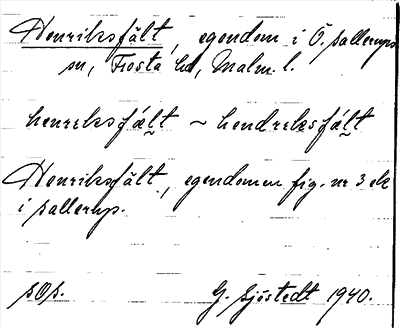 Henriksfält, egendom i Ö. Sallerups
sn, Frosta hd, Malm. l.
henreksfált ~ hendreksfált
Henriksfält, egendomen fig. nr 3 ek
i Sallerup.
sOs. G. Sjöstedt 1940.